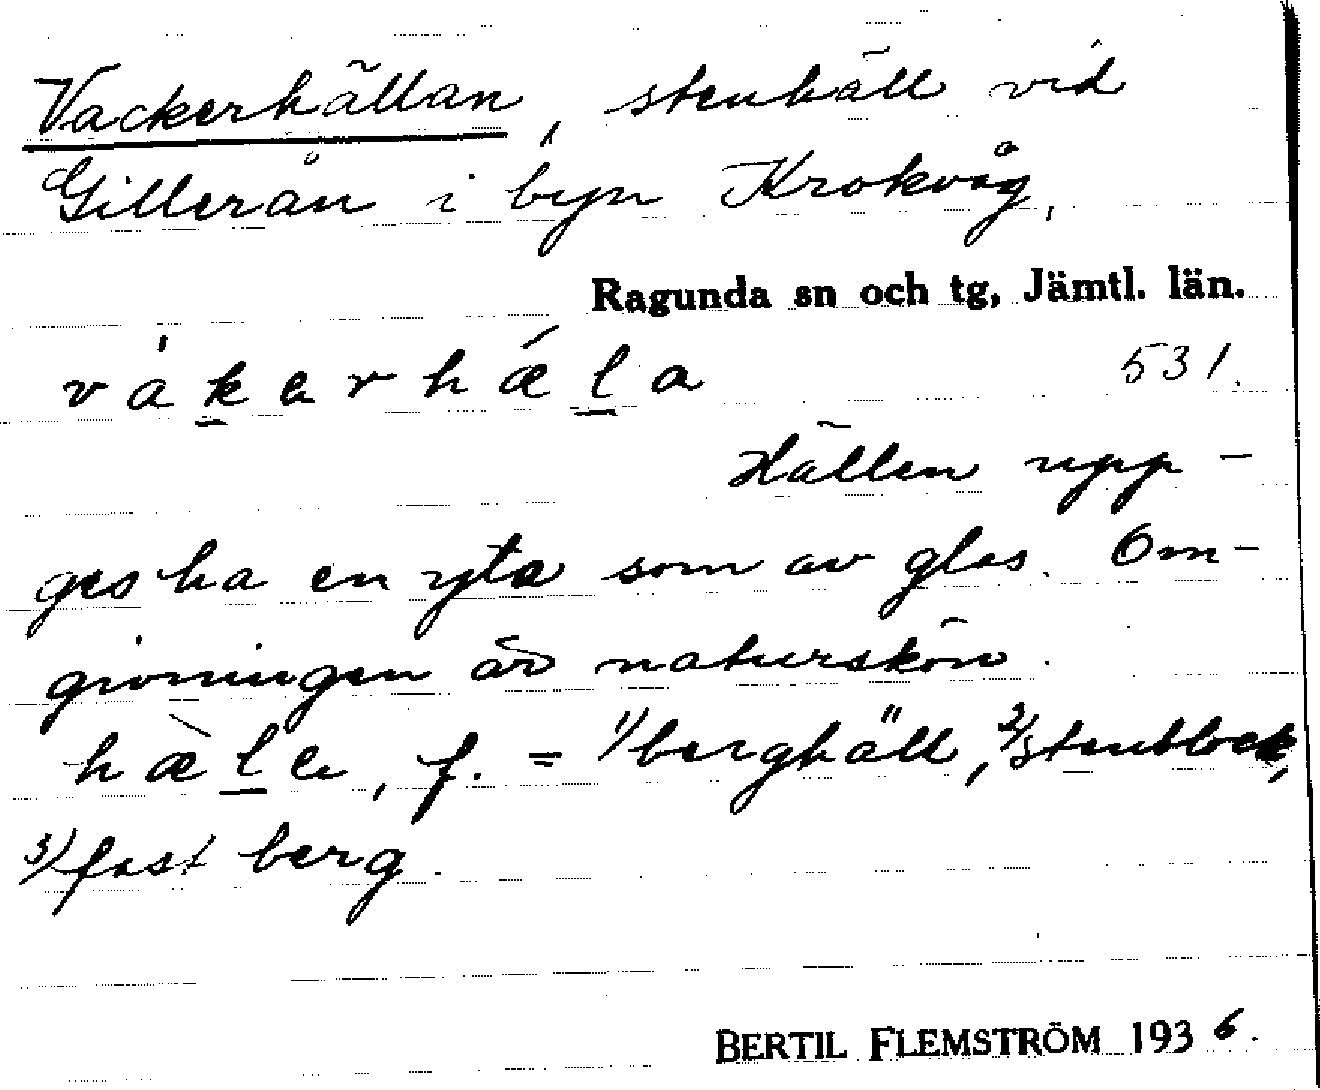 Vackerhällan, stenhäll vid
Gillerån i byn Krokvåg,
Ragunda sn och tg, Jämtl. län.
vákerhǽla 531.
Hällen upp-
ges ha en yta som av glas. Om-
givningen är naturskön.
hæ̀le, f. = 1/berghäll, 2/stenblock,
3/fast berg.
BERTIL FLEMSTRÖM 1936.